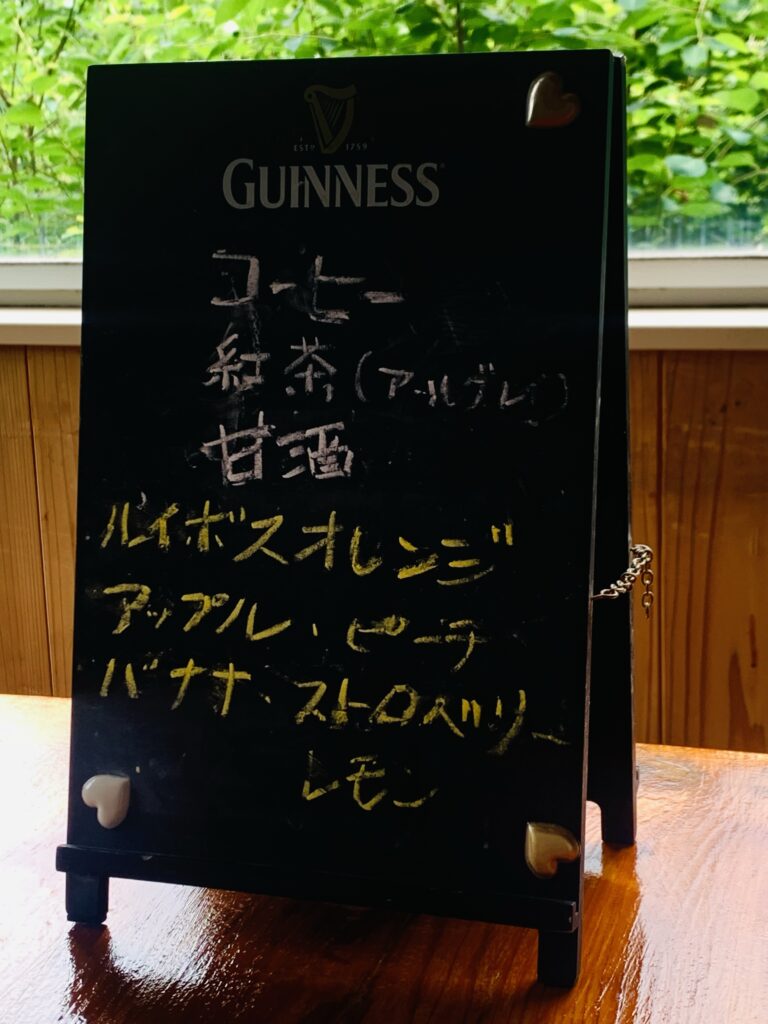 ESTD 1759
GUINNESS
コーヒー
紅茶(アールグレイ)
甘酒
ルイボスオレンジ
アップル・ピーチ
バナナ・ストロベリー
レモン